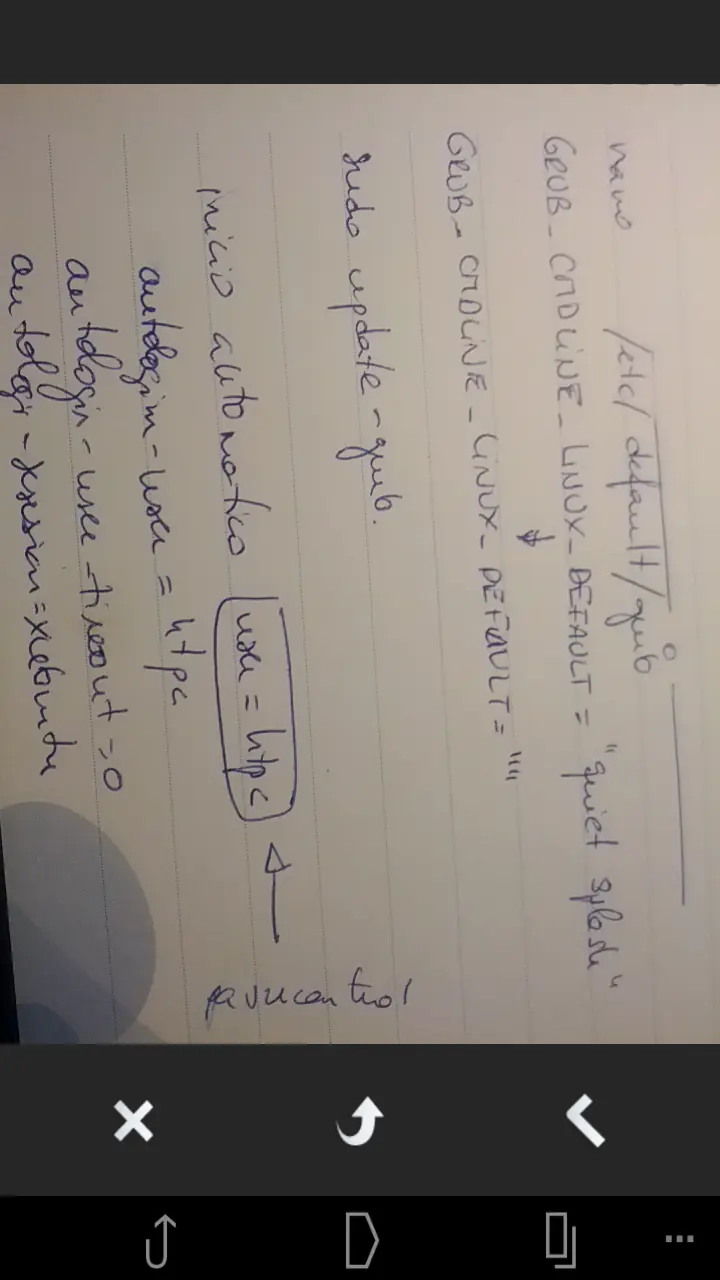 nano /etc/default/grub
GRUB_CMDLINE_LINUX_DEFAULT = "quiet splash"
GRUB_CMDLINE_LINUX_DEFAULT = ""
sudo update-grub.
inicio automatico user = htpc
pavucontrol
autologin-user = htpc
autologin-user-timeout = 0
autologi-xsession = xubuntu